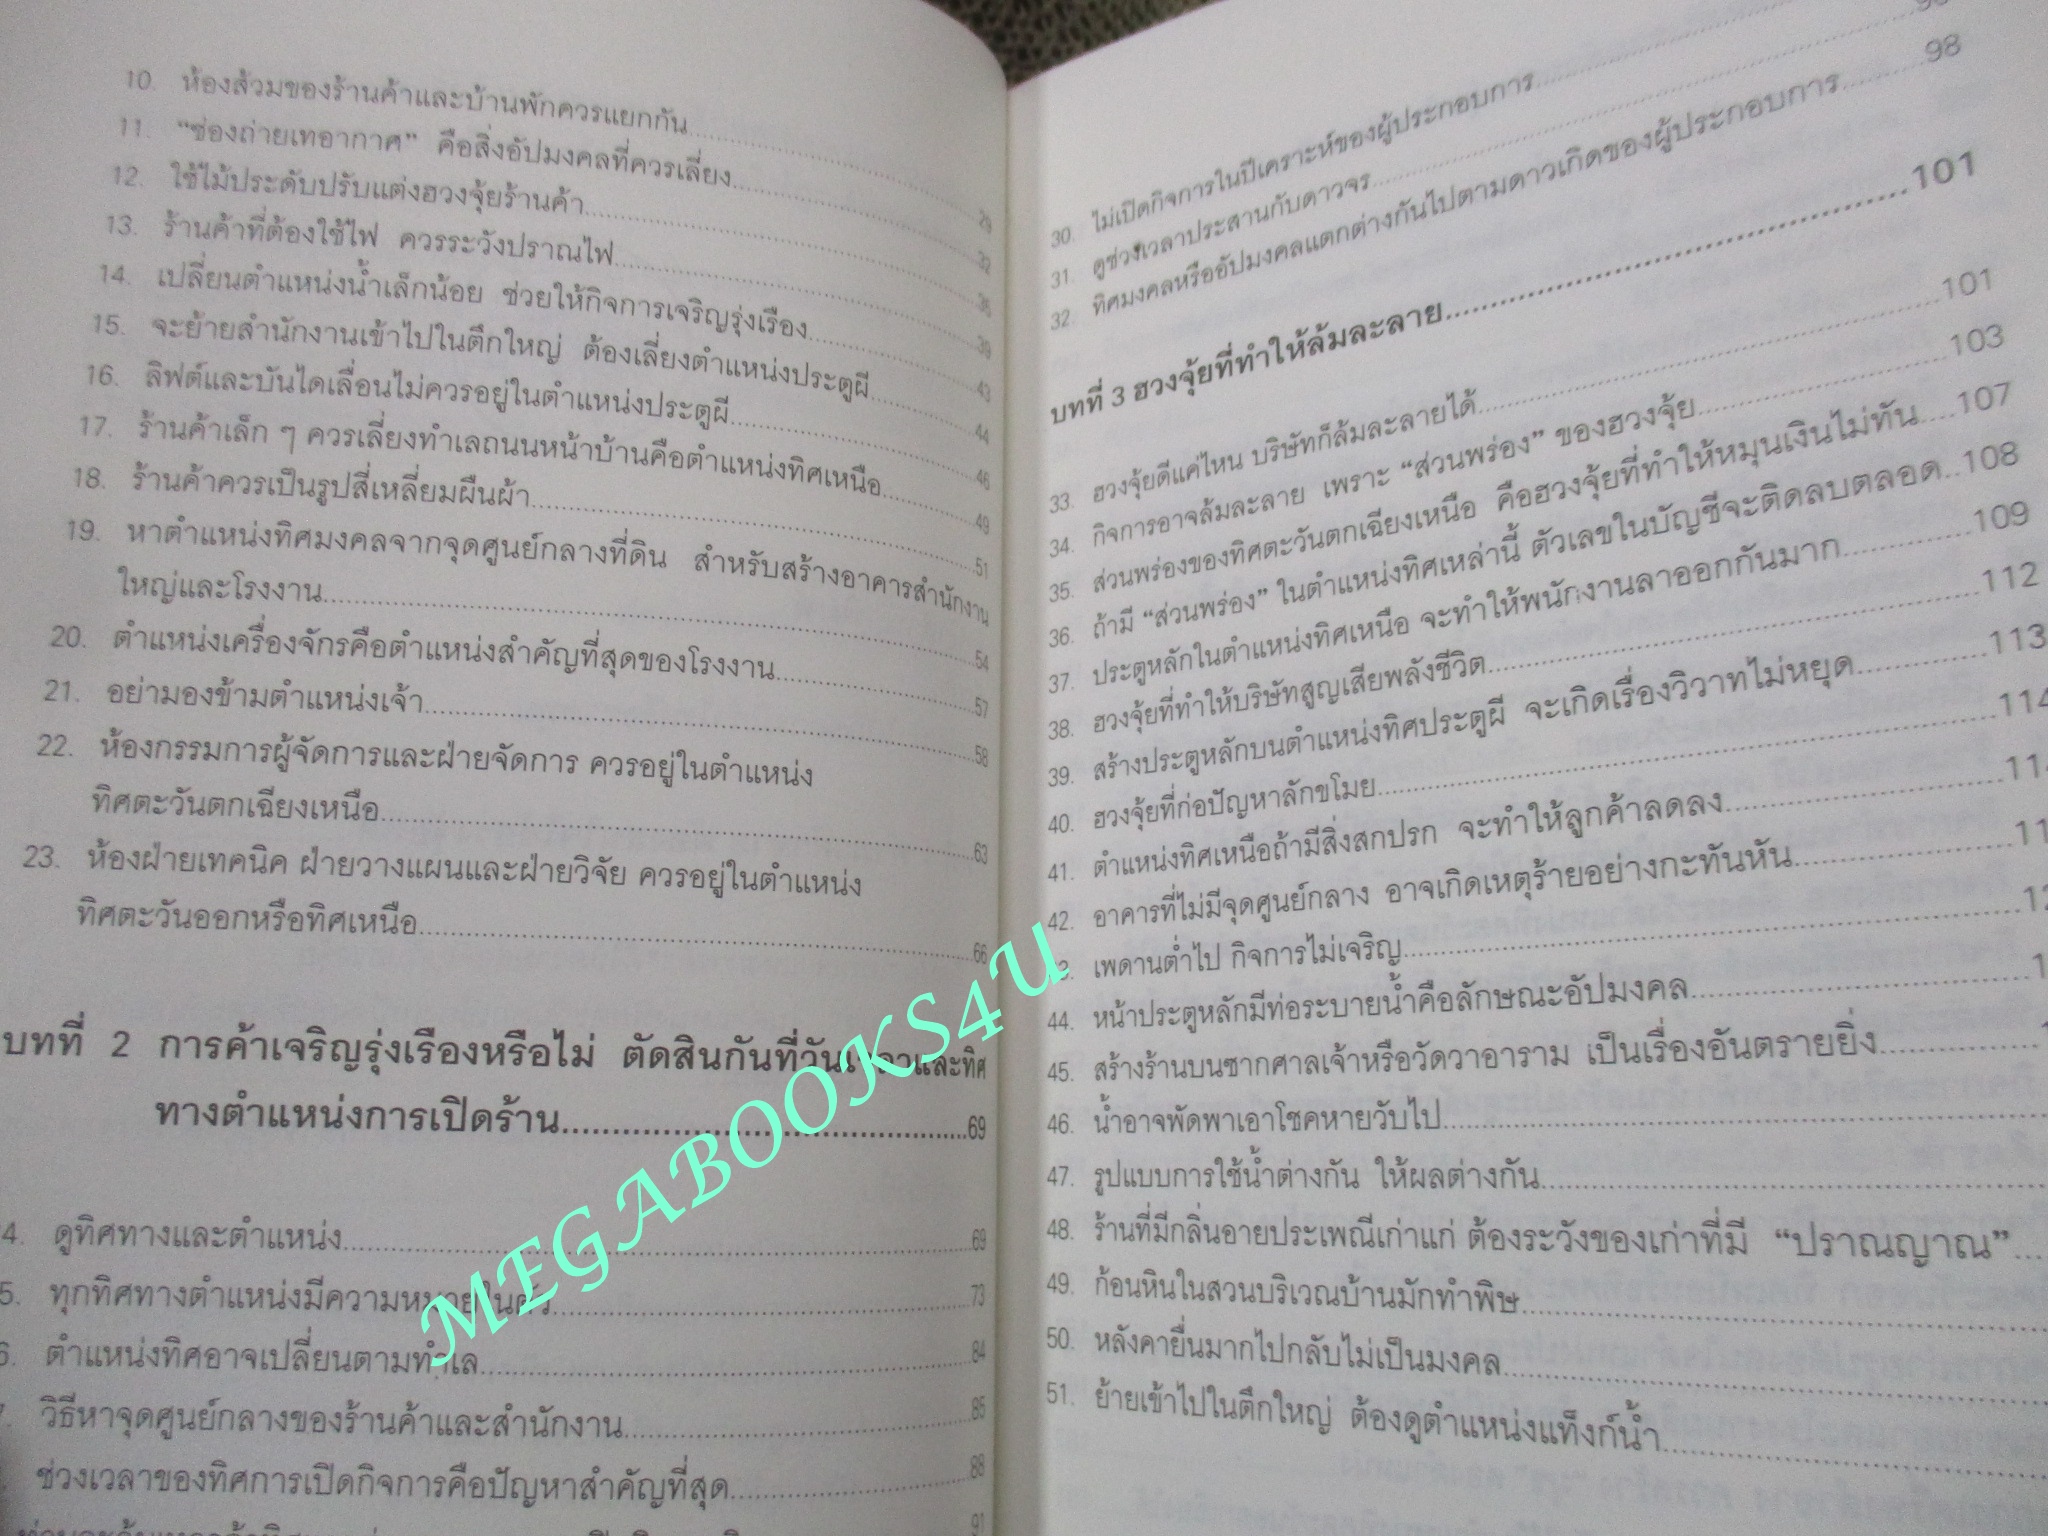 10. ห้องส้วมของร้านค้าและบ้านพักควรแยกกัน 29
11. “ช่องถ่ายเทอากาศ” คือสิ่งอัปมงคลที่ควรเลี่ยง 32
12. ใช้ไม้ประดับปรับแต่งฮวงจุ้ยร้านค้า 36
13. ร้านค้าที่ต้องใช้ไฟ ควรระวังปราณไฟ 39
14. เปลี่ยนตำแหน่งน้ำเล็กน้อย ช่วยให้กิจการเจริญรุ่งเรือง 43
15. จะย้ายสำนักงานเข้าไปในตึกใหญ่ ต้องเลี่ยงตำแหน่งประตูผี 44
16. ลิฟต์และบันไดเลื่อนไม่ควรอยู่ในตำแหน่งประตูผี 46
17. ร้านค้าเล็ก ๆ ควรเลี่ยงทำเลถนนหน้าบ้านคือตำแหน่งทิศเหนือ 49
18. ร้านค้าควรเป็นรูปสี่เหลี่ยมผืนผ้า 51
19. หาตำแหน่งทิศมงคลจากจุดศูนย์กลางที่ดิน สำหรับสร้างอาคารสำนักงาน
ใหญ่และโรงงาน 54
20. ตำแหน่งเครื่องจักรคือตำแหน่งสำคัญที่สุดของโรงงาน 57
21. อย่ามองข้ามตำแหน่งเจ้า 58
22. ห้องกรรมการผู้จัดการและฝ่ายจัดการ ควรอยู่ในตำแหน่ง
ทิศตะวันตกเฉียงเหนือ 63
23. ห้องฝ่ายเทคนิค ฝ่ายวางแผนและฝ่ายวิจัย ควรอยู่ในตำแหน่ง
ทิศตะวันออกหรือทิศเหนือ 66
บทที่ 2 การค้าเจริญรุ่งเรืองหรือไม่ ตัดสินกันที่วันเวลาและทิศ
ทางตำแหน่งการเปิดร้าน 69
4. ดูทิศทางและตำแหน่ง 69
5. ทุกทิศทางตำแหน่งมีความหมายในตัว 73
6. ตำแหน่งทิศอาจเปลี่ยนตามทำเล 84
7. วิธีหาจุดศูนย์กลางของร้านค้าและสำนักงาน 85
ช่วงเวลาของทิศการเปิดกิจการคือปัญหาสำคัญที่สุด 88
91
30. ไม่เปิดกิจการในปีเคราะห์ของผู้ประกอบการ
31. ดูช่วงเวลาประสานกับดาวจร
32. ทิศมงคลหรืออัปมงคลแตกต่างกันไปตามดาวเกิดของผู้ประกอบการ 98
บทที่ 3 ฮวงจุ้ยที่ทำให้ล้มละลาย 101
33. ฮวงจุ้ยดีแค่ไหน บริษัทก็ล้มละลายได้ 101
34. กิจการอาจล้มละลาย เพราะ “ส่วนพร่อง” ของฮวงจุ้ย 103
35. ส่วนพร่องของทิศตะวันตกเฉียงเหนือ คือฮวงจุ้ยที่ทำให้หมุนเงินไม่ทัน 107
36. ถ้ามี “ส่วนพร่อง” ในตำแหน่งทิศเหล่านี้ ตัวเลขในบัญชีจะติดลบตลอด 108
37. ประตูหลักในตำแหน่งทิศเหนือ จะทำให้พนักงานลาออกกันมาก 109
38. ฮวงจุ้ยที่ทำให้บริษัทสูญเสียพลังชีวิต 112
39. สร้างประตูหลักบนตำแหน่งทิศประตูผี จะเกิดเรื่องวิวาทไม่หยุด 113
40. ฮวงจุ้ยที่ก่อปัญหาลักขโมย 114
41. ตำแหน่งทิศเหนือถ้ามีสิ่งสกปรก จะทำให้ลูกค้าลดลง
42. อาคารที่ไม่มีจุดศูนย์กลาง อาจเกิดเหตุร้ายอย่างกะทันหัน
3. เพดานต่ำไป กิจการไม่เจริญ
44. หน้าประตูหลักมีท่อระบายน้ำคือลักษณะอัปมงคล
45. สร้างร้านบนซากศาลเจ้าหรือวัดวาอาราม เป็นเรื่องอันตรายยิ่ง
46. น้ำอาจพัดพาเอาโชคหายวับไป
47. รูปแบบการใช้น้ำต่างกัน ให้ผลต่างกัน
48. ร้านที่มีกลิ่นอายประเพณีเก่าแก่ ต้องระวังของเก่าที่มี “ปราณญาณ”
49. ก้อนหินในสวนบริเวณบ้านมักทำพิษ
50. หลังคายื่นมากไปกลับไม่เป็นมงคล
51. ย้ายเข้าไปในตึกใหญ่ ต้องดูตำแหน่งแท็งก์น้ำ
MEGABOOKS4U